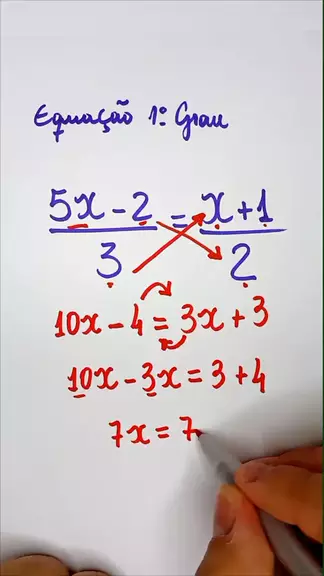 Equação 1º Grau
5x - 2 = x + 1
3 2
10x - 4 = 3x + 3
10x - 3x = 3 + 4
7x = 7